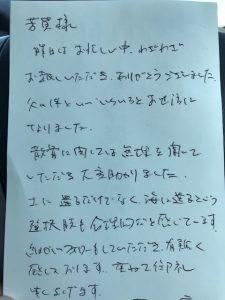 芳賀様
昨日はお忙しい中、わざわざ
お越しいただき、ありがとうございました。
父の件といい、いろいろとお世話に
なりました。
散骨に関しては無理を聞いて
いただき大変助かりました。
土に還るだけでなく、海に還るという
選択肢も合理的だと感じています。
フォローもしていただき、有難く
感じております。重ねて御礼
申し上げます。